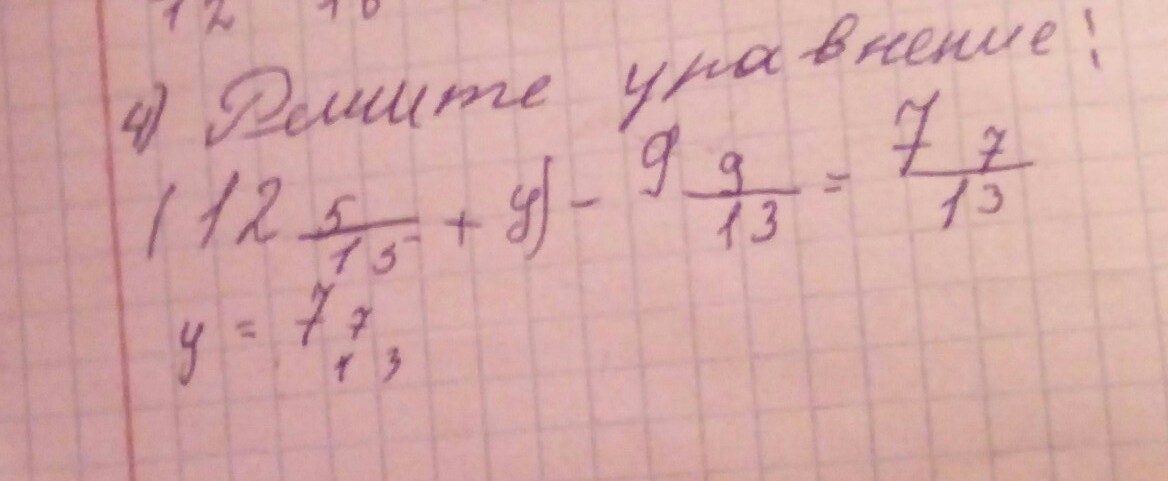 12 16
4) Решите уравнение!
(12 5/15 + y) - 9 9/13 = 7 7/13
y = 7 7/13